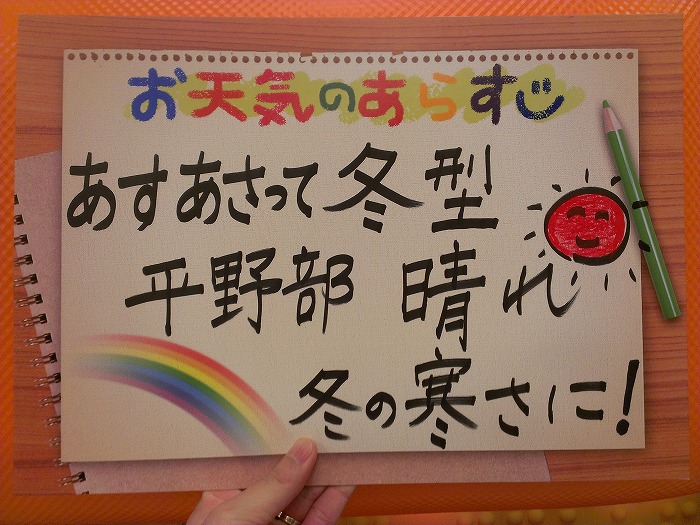 お天気のあらすじ
あすあさって冬型
平野部 晴れ
冬の寒さに!